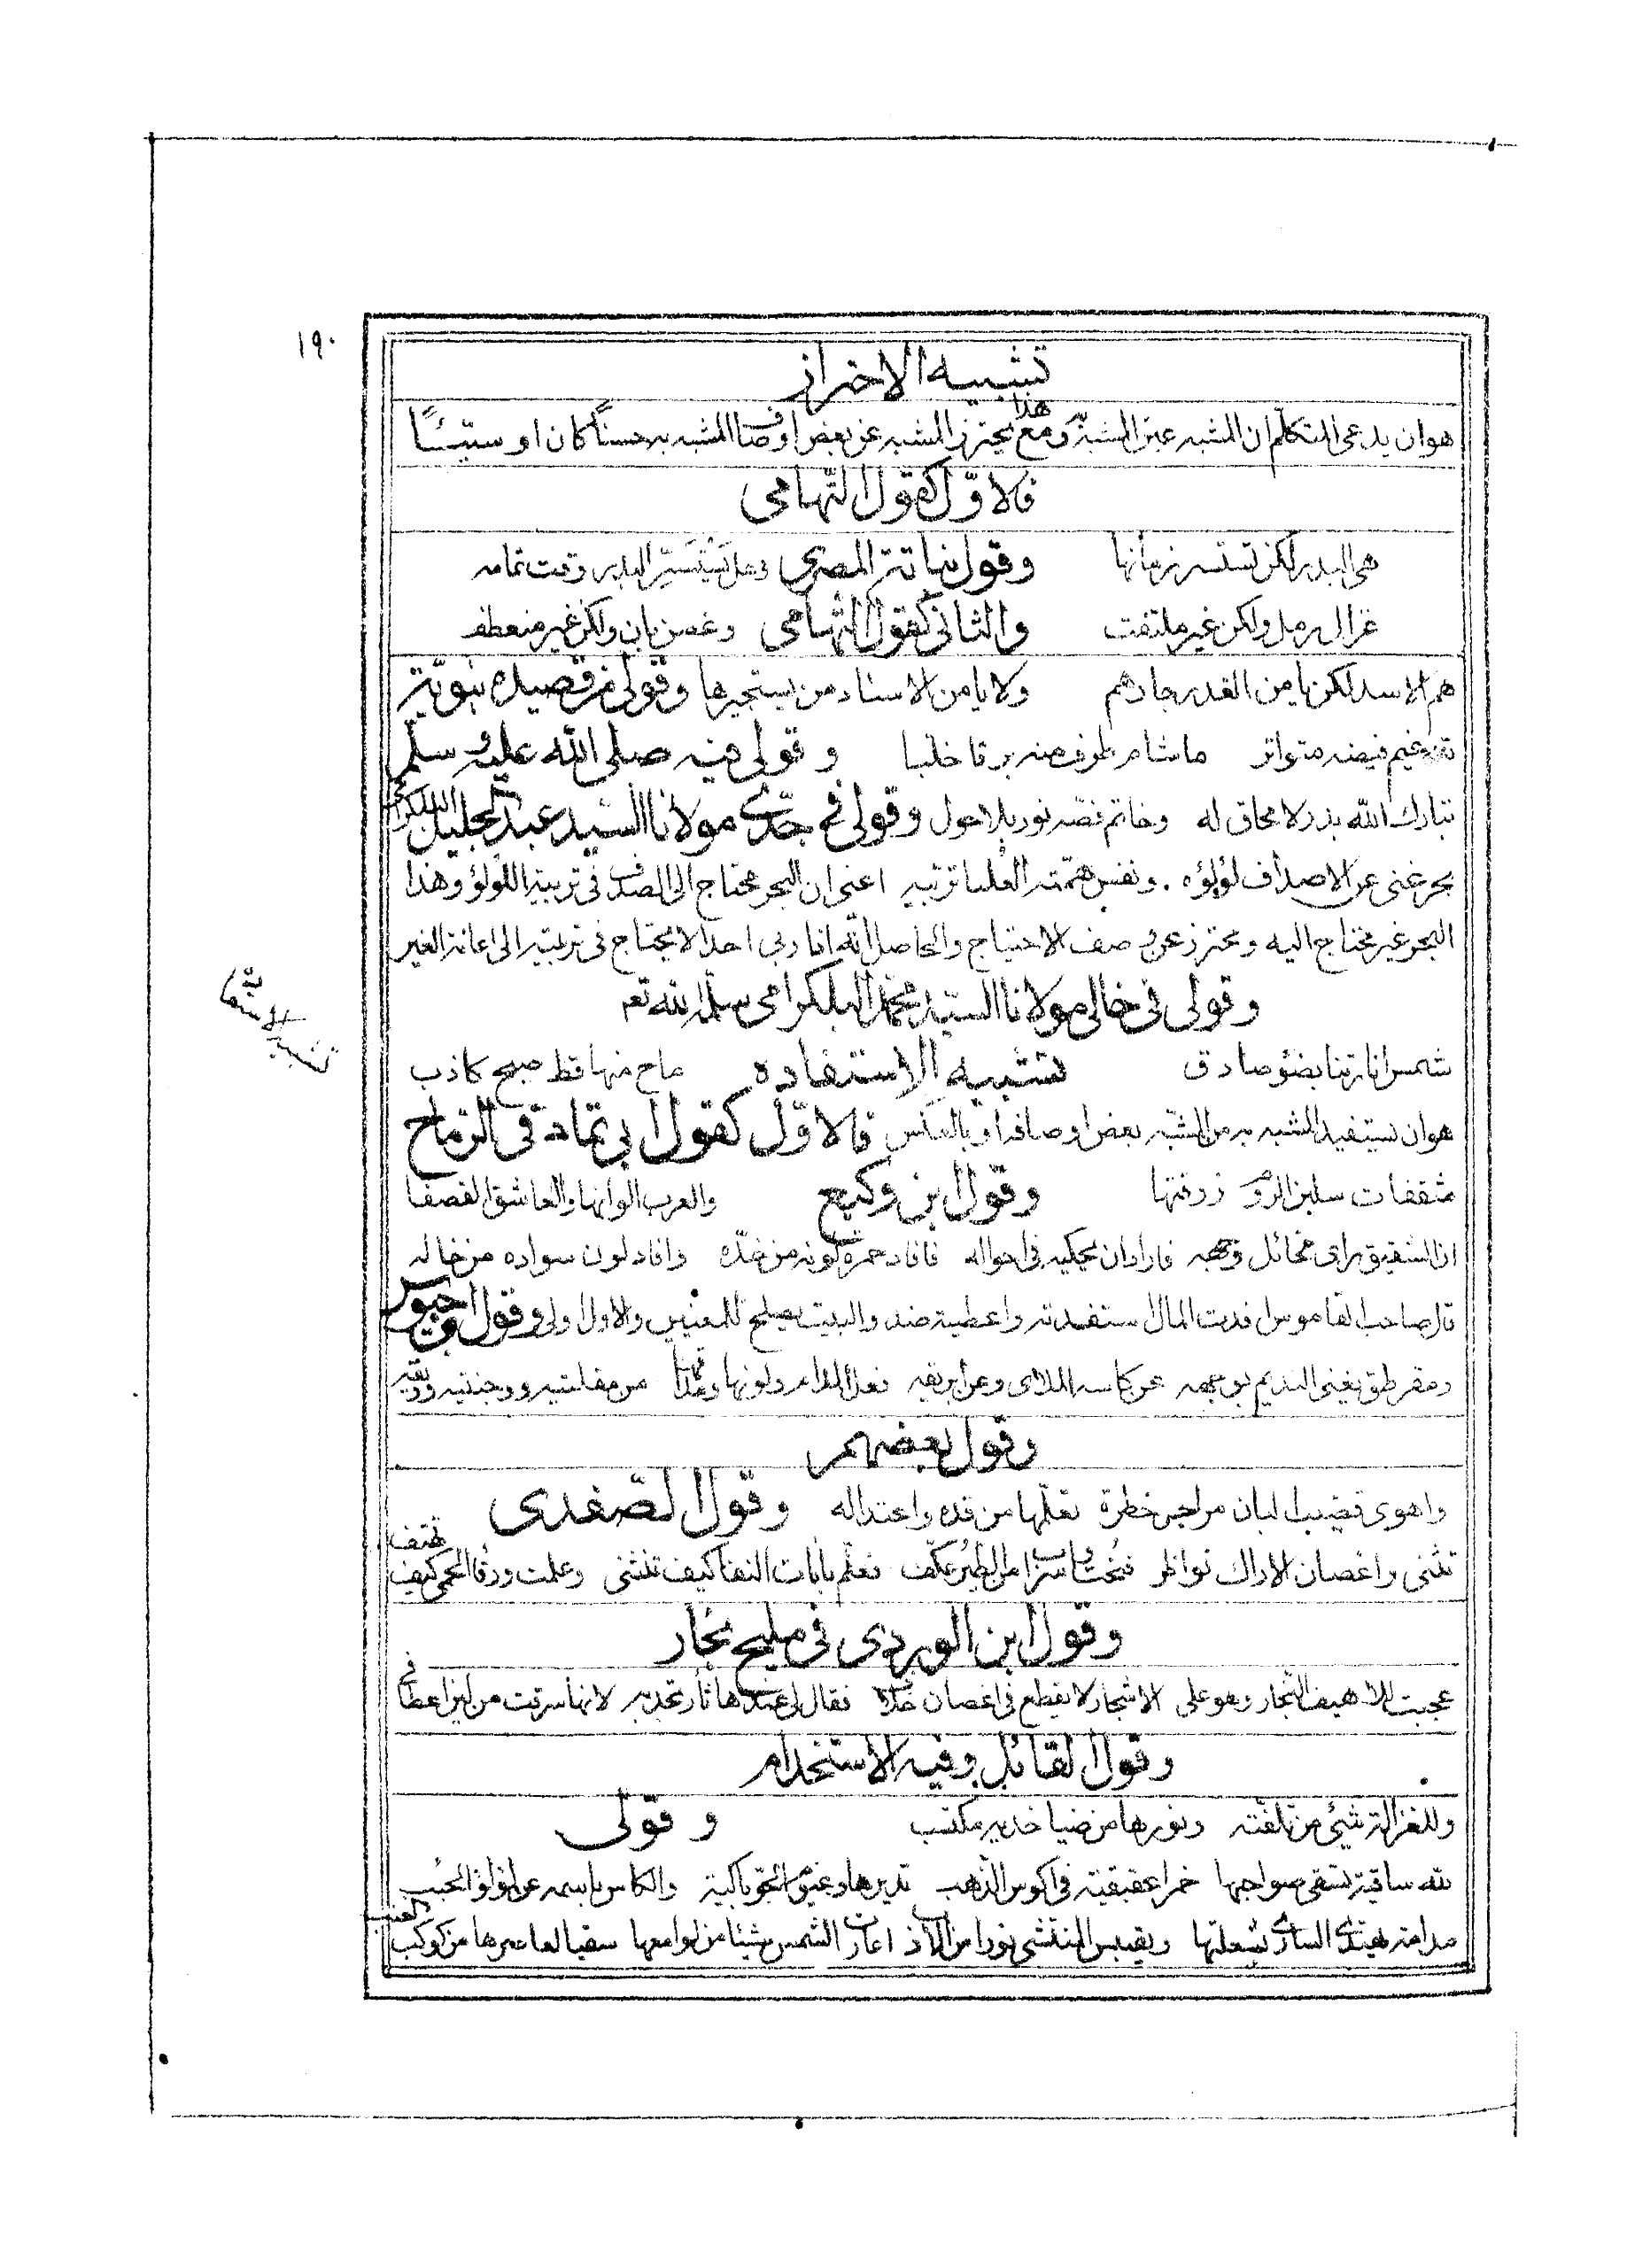 ١٩٠
تشبيه الاحتراز
هوان يدعى المتكلم ان المشبه عين المشبه به ومع هذا يحترز المشبه عن بعض اوصاف المشبه به حسناً كان او سيّئًا
فالاوّل كقول التّهامى
هى البدر لكن تستسر زمانها وقول نباتة المصرى وهل يَستَسِرّ البدر وقت تمامه
غزال رمل ولكن غير ملتفت والثانى كقول التهامى وغصن بان ولكن غير منعطف
هم الاسد لكن يامن الغدر جارهم ولا يامن الاساد من يستجيرها وقولى من قصيدة نبويّة
غيم فيضه متواتر ما شام طرف منه برقا خلبا وقولى فيه صلى الله عليه وسلم
تبارك الله بدر لا محاق له وخاتم فصّه نور بلا حول وقولى فى جدّى مولانا السيد عبد الجليل البلكرامى
بحر غنى عن الاصداف لؤلؤه . ونفس همّته العليا تربّيه اعنى ان البحر محتاج الى الصدف فى تربية اللّولؤ وهذا
البحر غير محتاج اليه ومحترز عن وصف الاحتياج والحاصل انّه اذا ربى احدا لا يحتاج فى تربيته الى اعانة الغير
وقولى فى خالى مولانا السيد محمّد البلكرامى سلّمه الله تعه
شمس انارتنا بضؤ صادق تشبيه الاستفاده ماح منها قط صبح كاذب
تشبيه الاستفادة
هوان يستفيد المشبه به من المشبّه بعض اوصافه او بالعكس فالاوّل كقول ابى تمام فى الرّماح
مثقفات سلبن الروم زرقتها وقول ابن وكيع والعرب الوانها والعاشق القصفا
ان الشقيق راى مخائل وجهه فاراد ان يحكيه فى احواله فافاد حمرة لونه من خدّه وافاد لون سواده من خاله
قال صاحب القاموس افدت المال استفدته واعطيته ضد والبيت يصلح للمعنيين والاول اولى وقول ابن حيوس
ومقرطق يغنى النديم بوجهه عن كاسه الملاى وعن ابريقه فعل المدام ولونها ومذاقها من مقلتيه ووجنتيه وريقه
وقول بعضهم
واهوى قضيب البان من اجل خطرة تعلّمها من قده واعتداله وقول الصّفدى
تثنى واغصان الاراك نواظر فنحت واسراب من الطير عكّف فعلّم بانات النقا كيف تنثنى وعلمت ورقاء الحمى كيف تهتف
وقول ابن الوردى فى مليح نجار
عجبت للاهيف النّجار وهو على الاشجار لا يقطع فى اغصان فقال لى عندها ثار تحذير لانها سرقت من لين اعطافى
وقول القائل وفيه الاستخدام
وللغزالة شيئ من تلفّته ونورها من ضيا خديه مكتسب وقولى
لله ساقية تسقى صواحبها خمرا عقيقية فى اكوس الذهب تديرها وعيون باكية والكاس باسمه عن لؤلؤ الحبب
مدامة يهتدى السارى بشعلتها ويقبس المنتشى نورا من اعارت الشمس شيئا من لوامعها سقيا لعاصرها من كوكب العنب